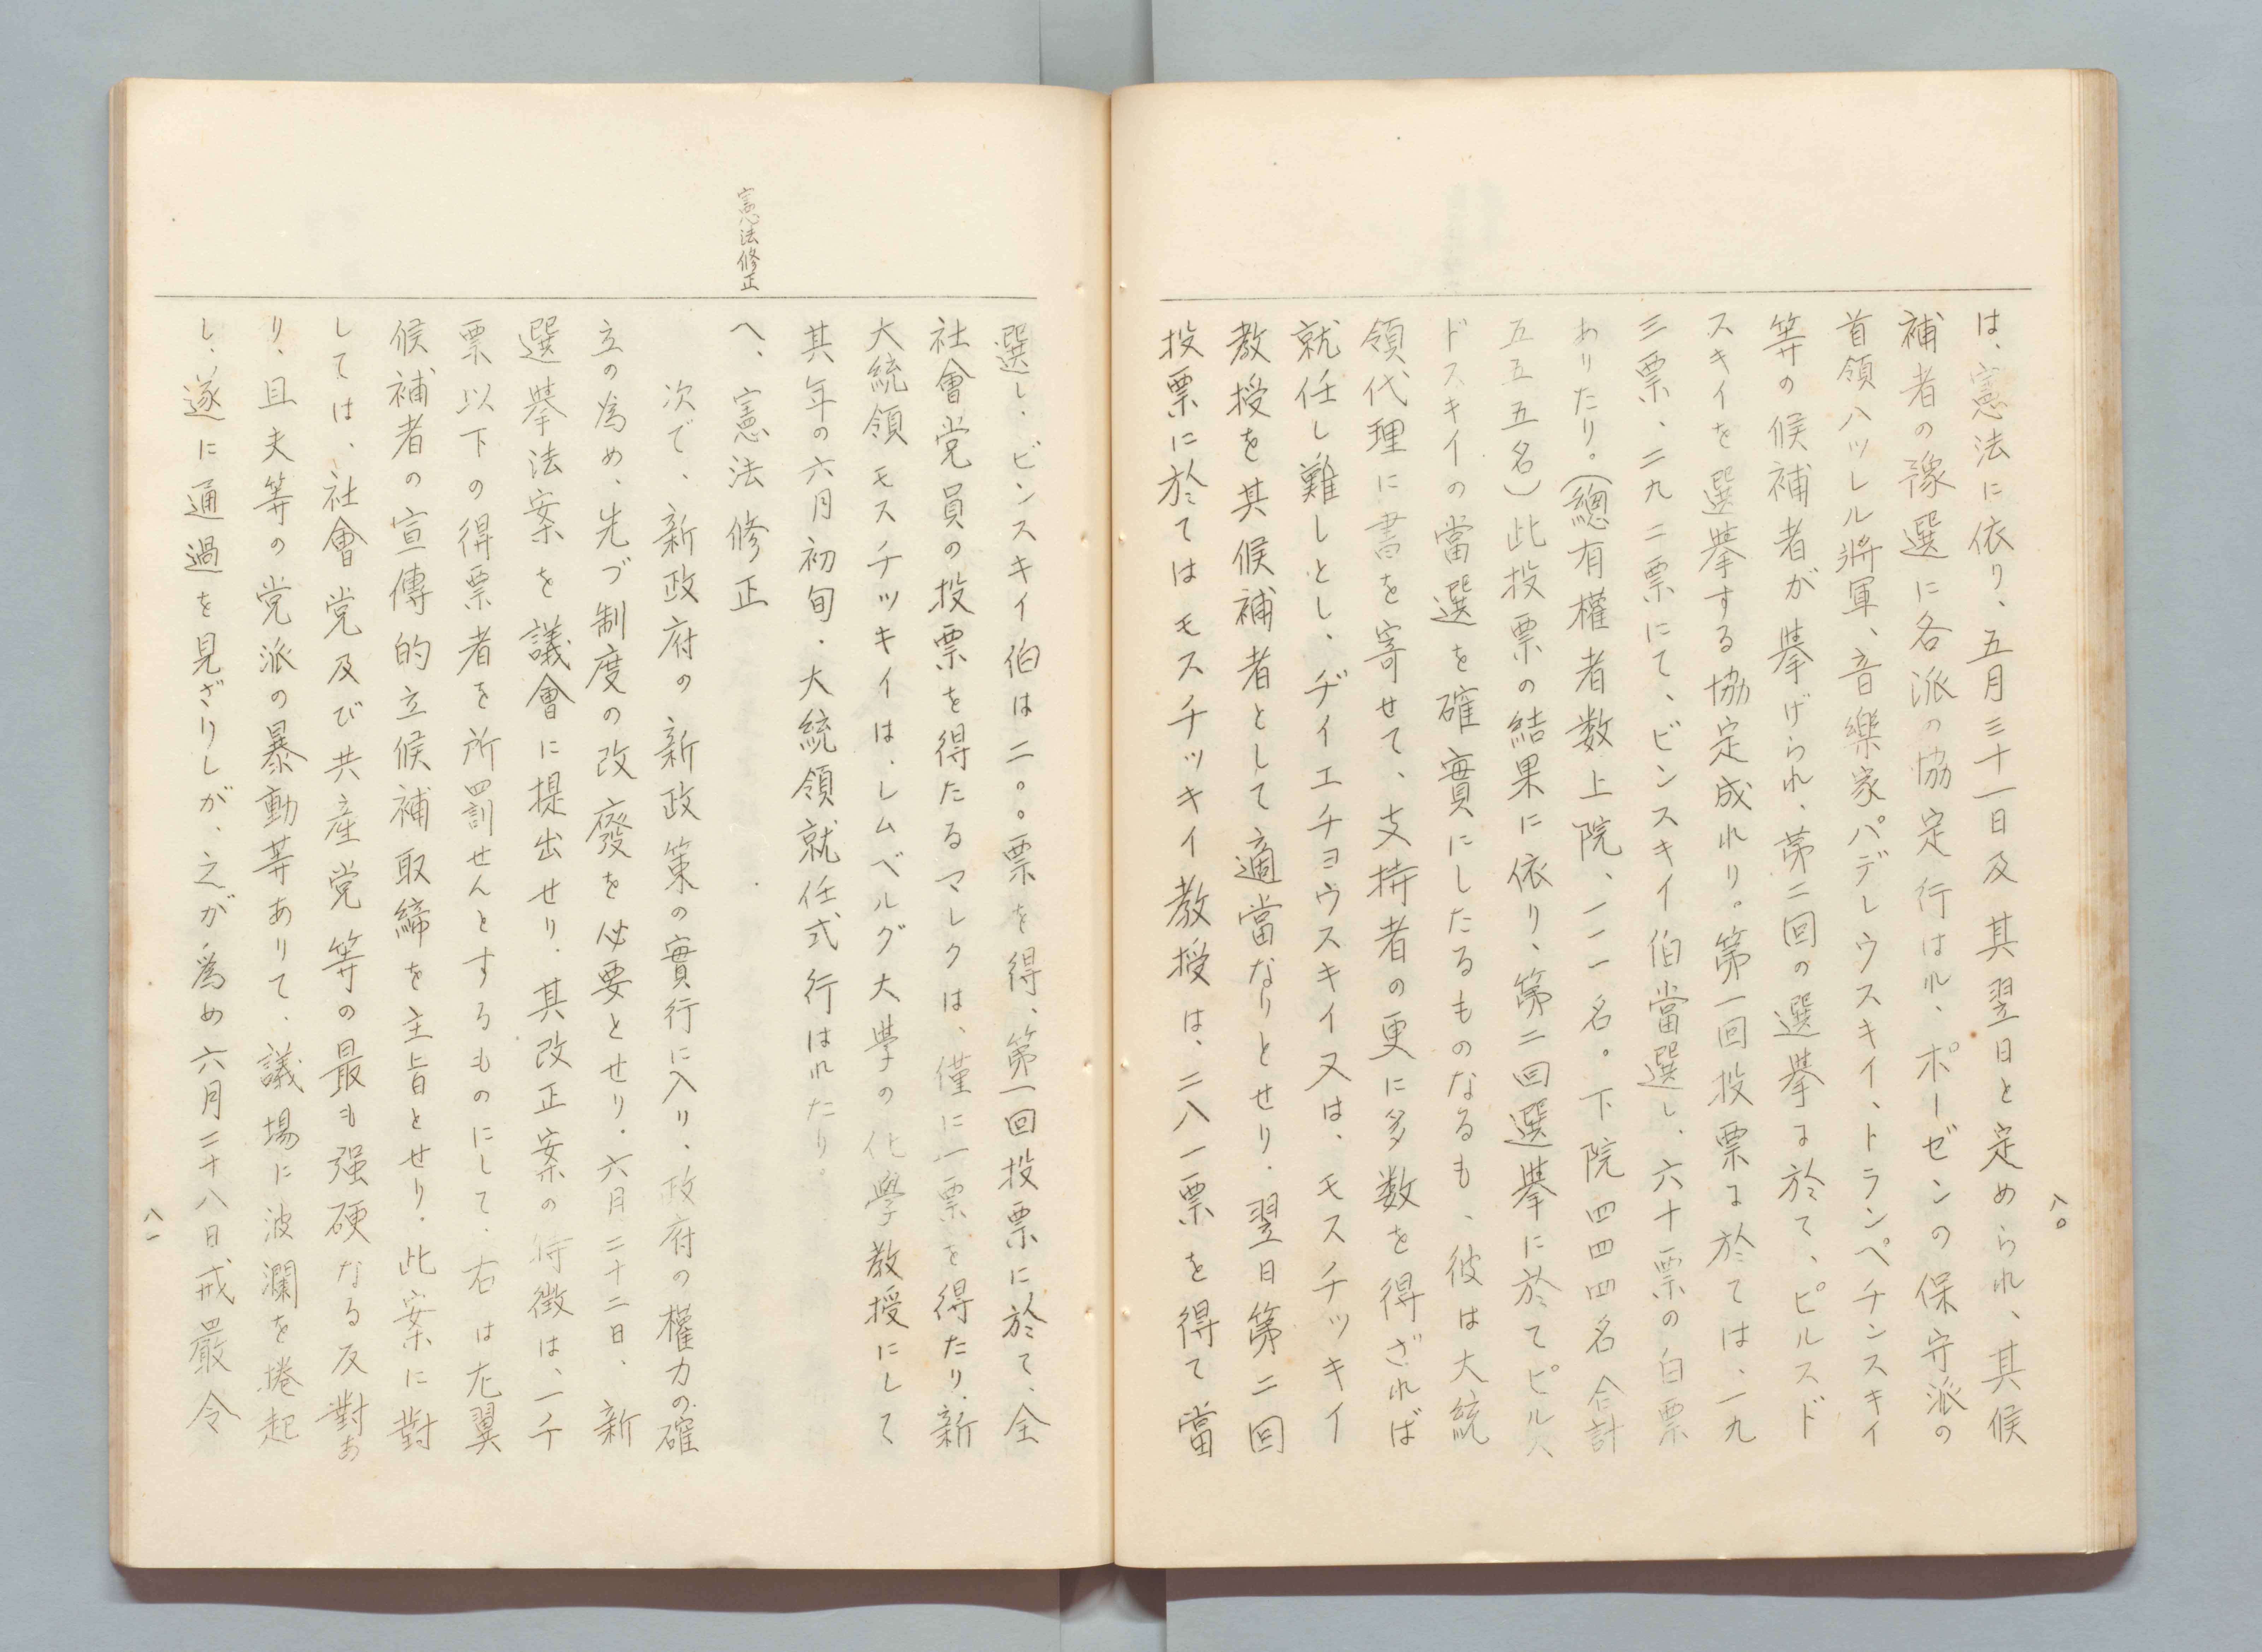 八〇
は、憲法に依り、五月三十一日及其翌日と定められ、其候
補者の豫選に各派の協定行はれ、ポーゼンの保守派の
首領ハッレル將軍、音樂家パデレウスキイ、トランペチンスキイ
等の候補者が擧げられ、第二回の選擧に於て、ピルスド
スキイを選擧する協定成れり。第一回投票に於ては、一九
三票、二九二票にて、ビンスキイ伯當選し、六十票の白票
ありたり。(總有權者数上院、一一一名。下院四四四名合計
五五五名)此投票の結果に依り、第二回選擧に於てピルス
ドスキイの當選を確實にしたるものなるも、彼は大統
領代理に書を寄せて、支持者の更に多数を得ざれば
就任し難しとし、ヂイエチヨウスキイ又は、モスチツキイ
教授を其候補者として適當なりとせり．翌日第二回
投票に於てはモスチッキイ教授は、二八一票を得て當
選し．ビンスキイ伯は二〇〇票を得、第一回投票に於て、全
社會党員の投票を得たるマレクは、僅に一票を得たり．新
大統領モスチッキイは、レムベルグ大學の化學教授にして
其年の六月初旬．大統領就任式行はれたり。
憲法修正
へ、憲法修正
次で、新政府の新政策の實行に入り、政府の權力の確
立の為め、先づ制度の改廢を必要とせり．六月二十二日、新
選擧法案を議會に提出せり．其改正案の特徴は、一千
票以下の得票者を所罰せんとするものにして、右は左翼
候補者の宣傳的立候補取締を主旨とせり．此案に對
しては、社會党及び共産党等の最も强硬なる反對あ
り、且夫等の党派の暴動等ありて、議場に波瀾を捲起
し、遂に通過を見ざりしが、之が爲め六月二十八日、戒嚴令
八一